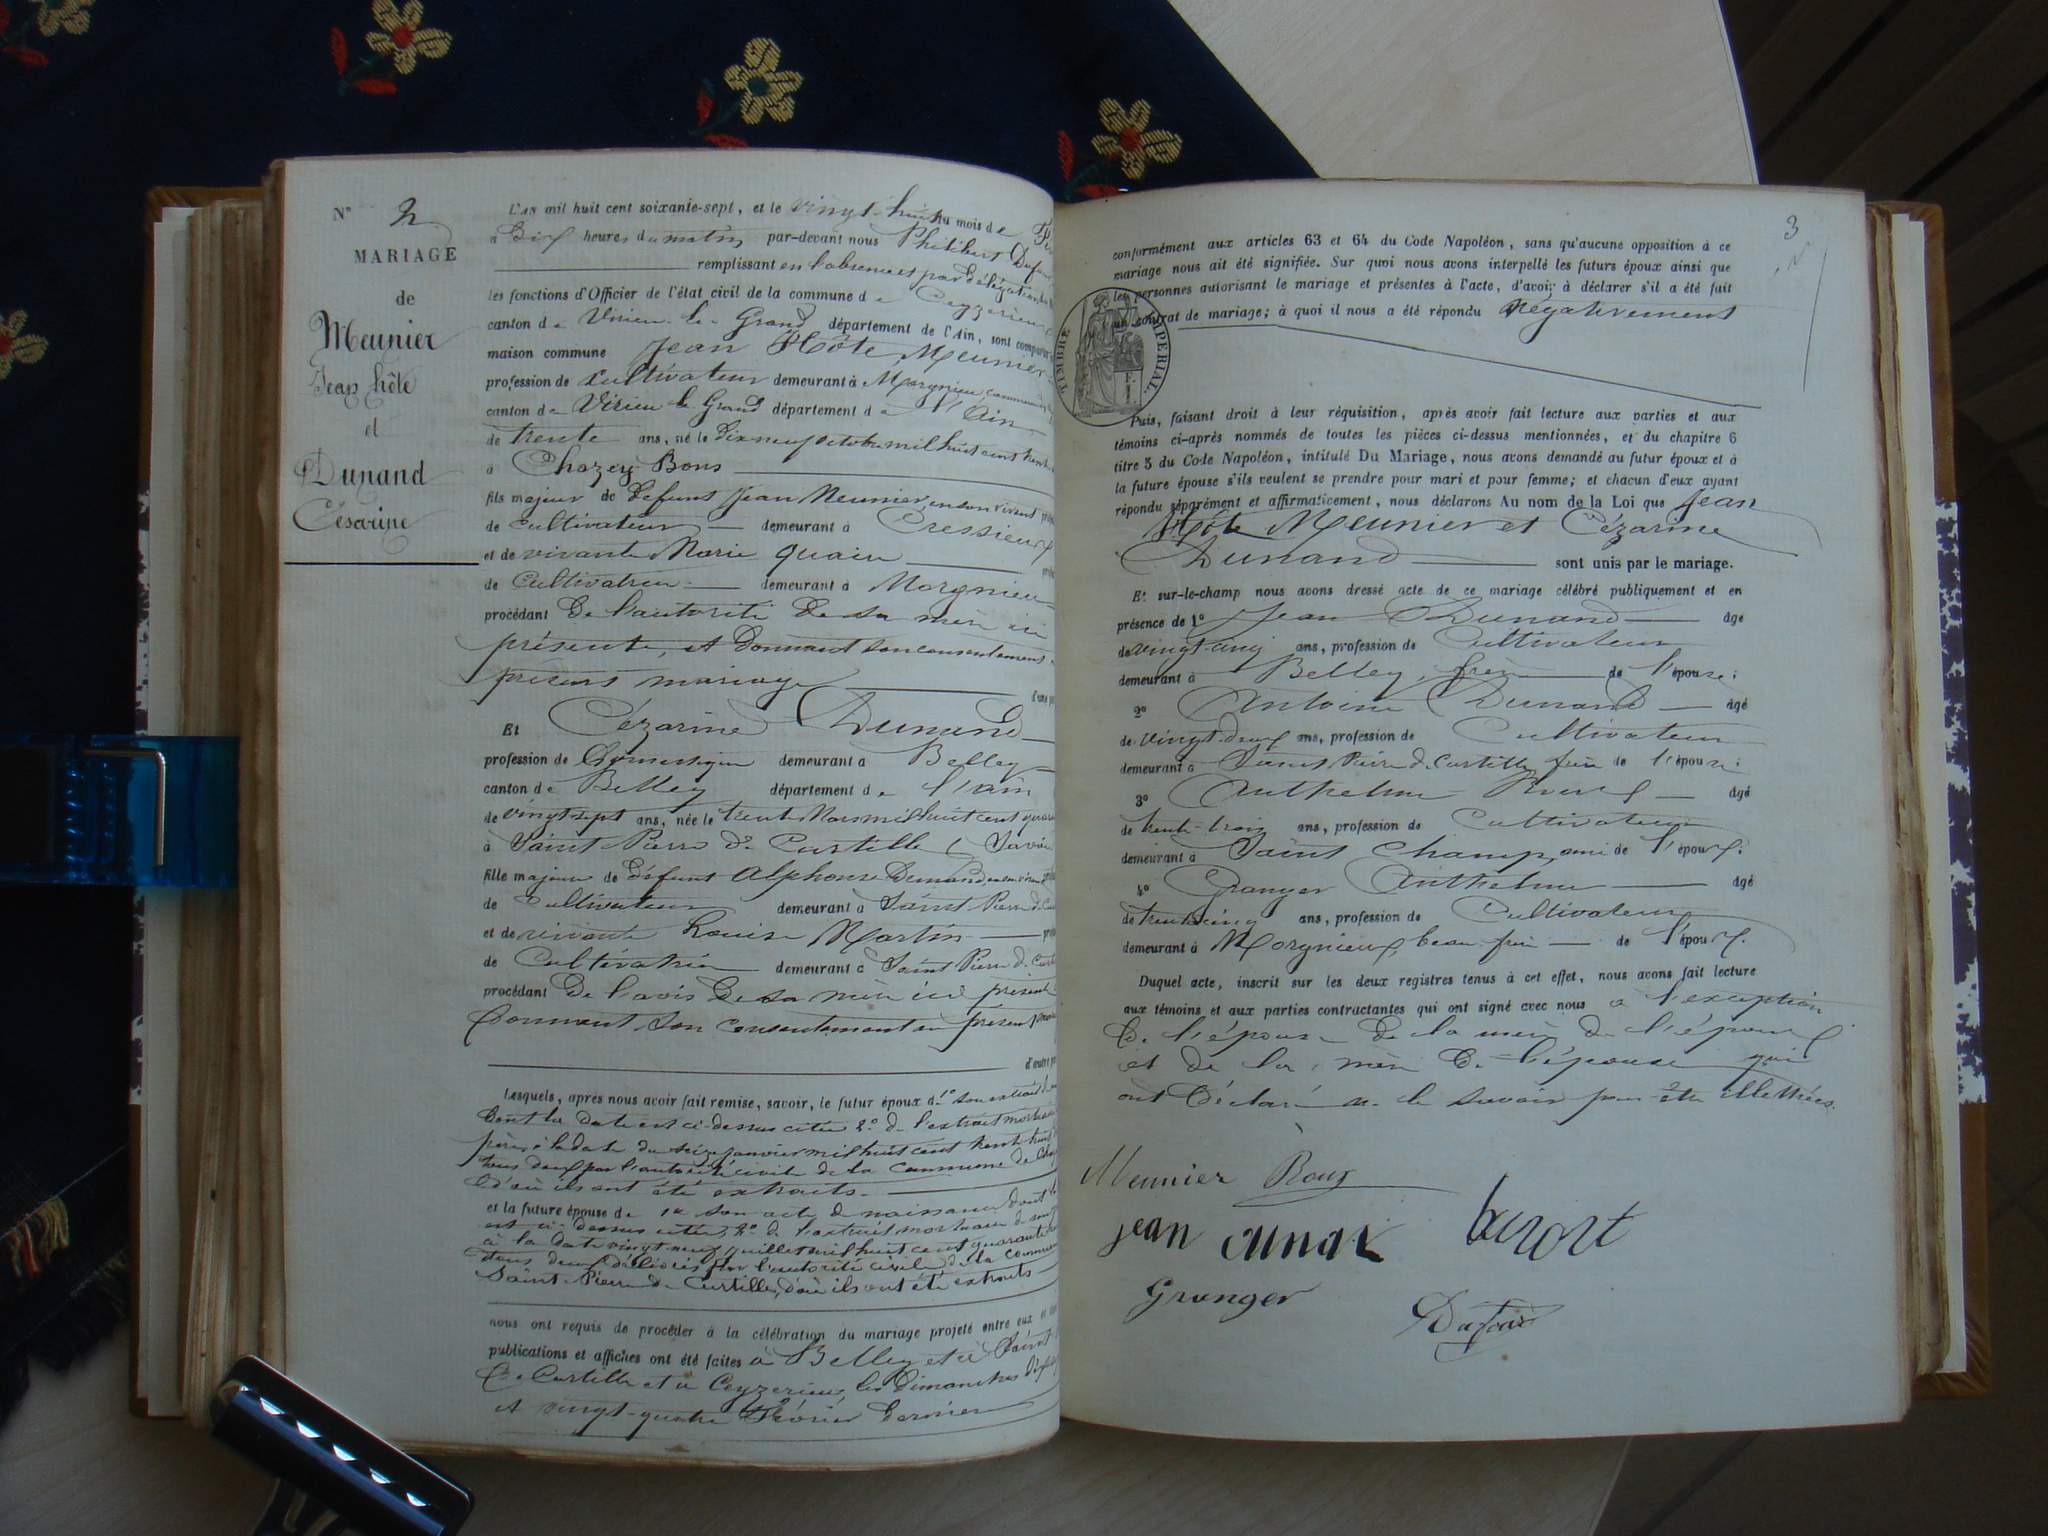 N° 2
MARIAGE
de
Meunier
Jean hôte
et
Dunand
Césarine
L'AN mil huit cent soixante-sept, et le vingt-huit du mois de
à Dix heures du matin par-devant nous Philibert
remplissant en l'absence et par délégation
les fonctions d'Officier de l'état civil de la commune de Ceyzerieu
canton de Virieu le Grand département de l'Ain, sont comparus
maison commune Jean Hôte Meunier
profession de Cultivateur demeurant à Morgnieu commune
canton de Virieu le Grand département de l'Ain
de trente ans, né le dix neuf octobre mil huit cent
à Chazey-Bons
fils majeur de défunt Jean Meunier, en son vivant
de Cultivateur demeurant à Cressieux
et de vivante Marie
de Cultivatrice demeurant à Morgnieu
procédant De l'autorité de sa mère ici
présente, et donnant son consentement
présent mariage
Et Cézarine Dunand
profession de Domestique demeurant à Belley
canton de Belley département de l'Ain
de vingt sept ans, née le trente Mars mil huit cent
à Saint Pierre de Curtille (Savoie
fille majeure de défunt Alphonse Dunand, en son vivant
de Cultivateur demeurant à Saint Pierre de
et de vivante Louise Martin
de Cultivatrice demeurant à Saint Pierre de
procédant De l'avis de sa mère ici présente
Donnant son consentement au présent
d'autre
Lesquels, après nous avoir fait remise, savoir, le futur époux de 1° son extrait
dont la date est ci-dessus citée 2° de l'extrait mortuaire
père à la date du seize janvier mil huit cent
tous deux par l'autorité civile de la commune de
d'où ils ont été extraits
et la future épouse de 1° son acte de naissance dont la
est ci-dessus citée, 2° de l'extrait mortuaire de son
à la date vingt juillet mil huit cent quarante
tous deux délivrés par l'autorité civile de la commune
Saint-Pierre de Curtille, d'où ils ont été extraits
nous ont requis de procéder à la célébration du mariage projeté entre eux et
publications et affiches ont été faites à Belley et à Saint
de Curtille et à Ceyzerieu, les Dimanches
et vingt-quatre Février dernier
3
conformément aux articles 63 et 64 du Code Napoléon, sans qu'aucune opposition à ce
mariage nous ait été signifiée. Sur quoi nous avons interpellé les futurs époux ainsi que
les personnes autorisant le mariage et présentes à l'acte, d'avoir à déclarer s'il a été fait
un contrat de mariage; à quoi il nous a été répondu négativement
TIMBRE IMPERIAL.
Puis, faisant droit à leur réquisition, après avoir fait lecture aux parties et aux
témoins ci-après nommés de toutes les pièces ci-dessus mentionnées, et du chapitre 6
titre 5 du Code Napoléon, intitulé Du Mariage, nous avons demandé au futur époux et à
la future épouse s'ils veulent se prendre pour mari et pour femme; et chacun d'eux ayant
répondu séparément et affirmativement, nous déclarons Au nom de la Loi que Jean
Hôte Meunier et Cézarine
Dunand sont unis par le mariage.
Et sur-le-champ nous avons dressé acte de ce mariage célébré publiquement et en
présence de 1° Jean Dunand âgé
de vingt cinq ans, profession de Cultivateur
demeurant à Belley, frère de l'épouse;
2° Antoine Dunand âgé
de vingt-deux ans, profession de Cultivateur
demeurant à Saint Pierre de Curtille frère de l'épouse;
3° Anthelme Roux âgé
de trente-trois ans, profession de Cultivateur
demeurant à Saint Champ, ami de l'époux;
4° Granger Anthelme âgé
de trente cinq ans, profession de Cultivateur
demeurant à Morgnieux, beau frère de l'époux.
Duquel acte, inscrit sur les deux registres tenus à cet effet, nous avons fait lecture
aux témoins et aux parties contractantes qui ont signé avec nous à l'exception
de l'épouse de la mère de l'époux
et de la mère de l'épouse qui
ont déclaré ne le savoir pour être illettrées.
Meunier Roux
jean dunar
Granger Dufour